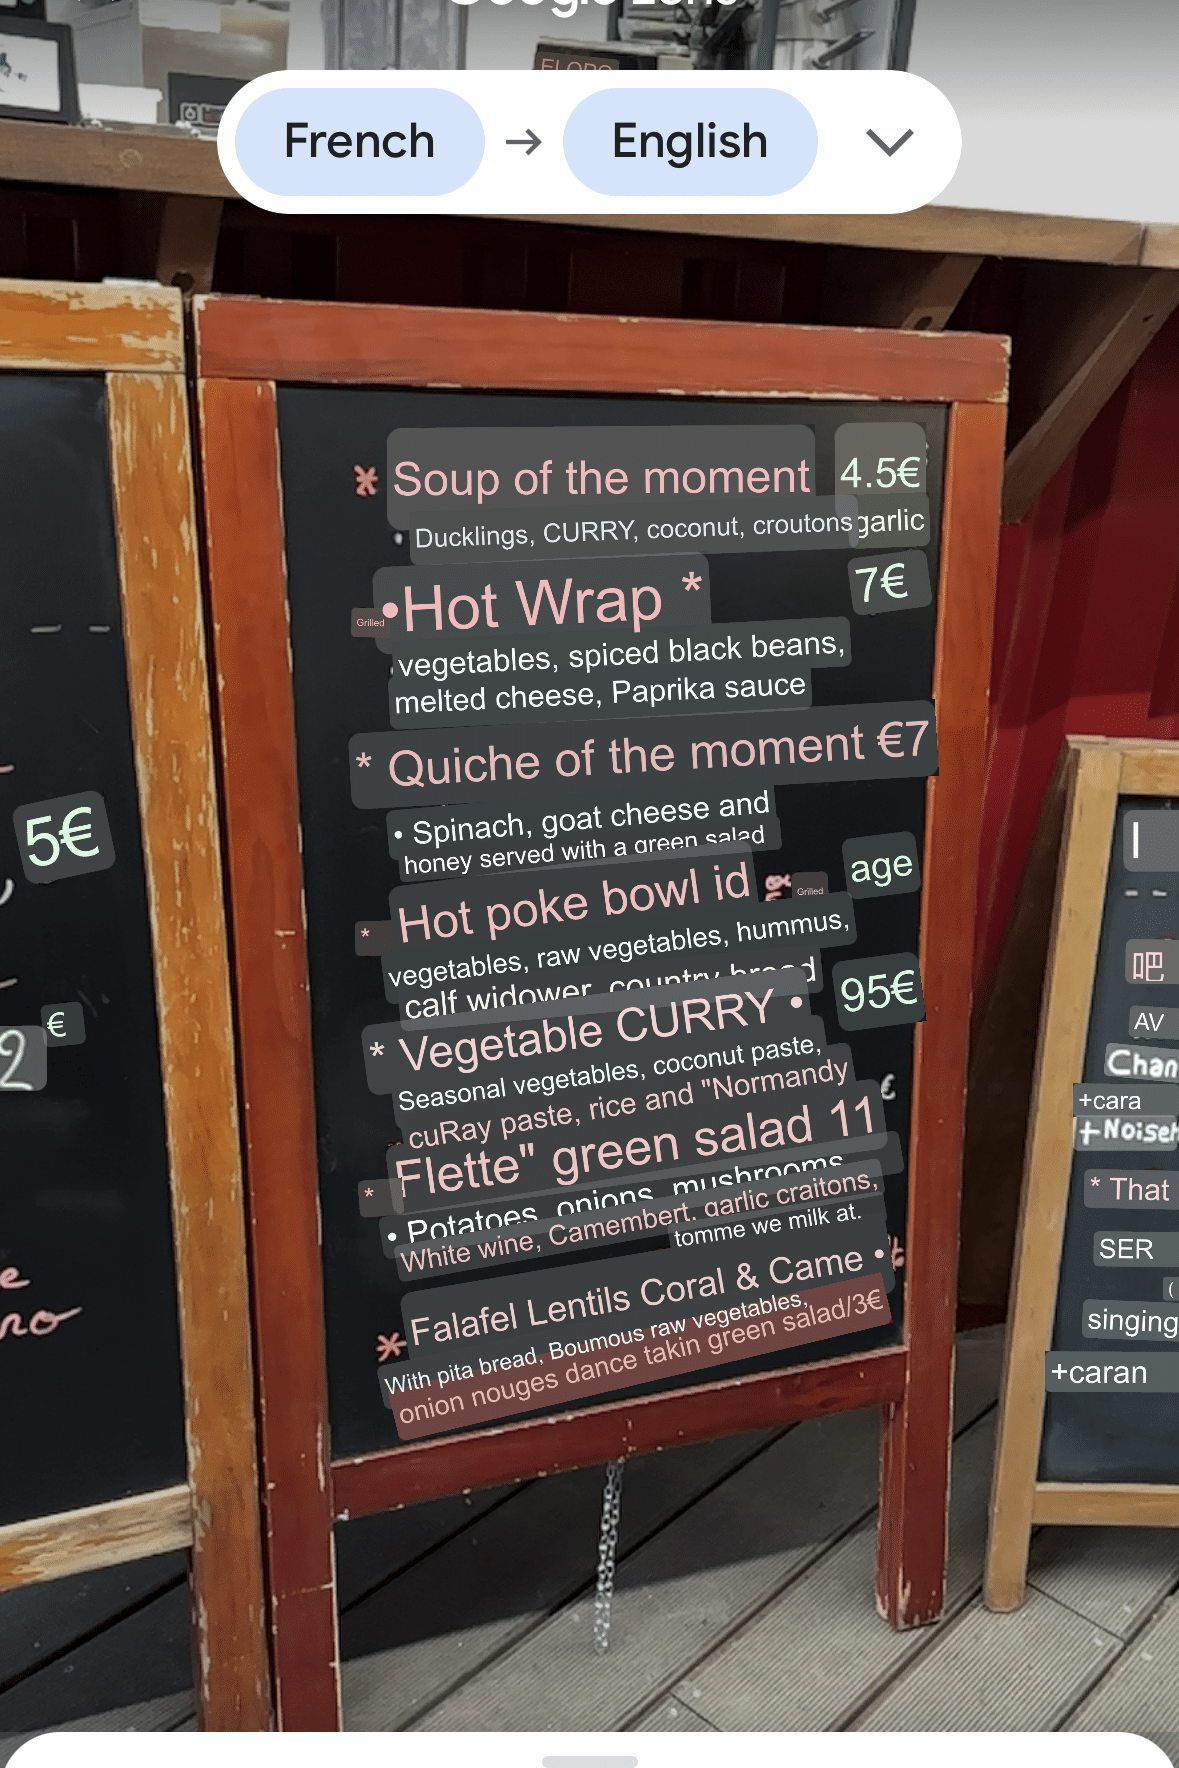 French → English
5€
2 €
* Soup of the moment 4.5€
Ducklings, CURRY, coconut, croutons garlic
•Hot Wrap * 7€
Grilled
vegetables, spiced black beans,
melted cheese, Paprika sauce
* Quiche of the moment €7
• Spinach, goat cheese and
honey served with a green salad
* Hot poke bowl id Grilled age
vegetables, raw vegetables, hummus,
calf widower, country bread
* Vegetable CURRY • 95€
Seasonal vegetables, coconut paste,
cuRay paste, rice and "Normandy
€
* Flette" green salad 11
• Potatoes, onions, mushrooms
White wine, Camembert, garlic craitons,
tomme we milk at.
* Falafel Lentils Coral & Came •
With pita bread, Boumous raw vegetables,
onion nouges dance takin green salad/3€
吧
AV
Chan
+cara
+Noiset
* That
SER
(
singing
+caran